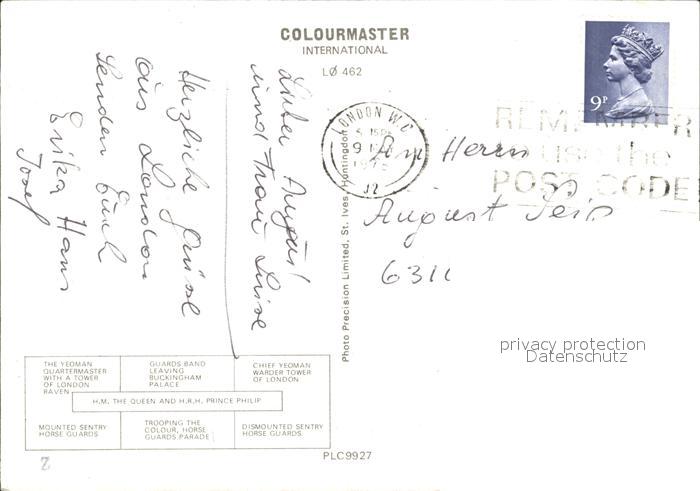 COLOURMASTER
INTERNATIONAL
LØ 462
9P
LONDON W.C
5 15 PM
12
REMEMBER
use the
POST CODE
Lieber August!
und Frau Luise
Herzliche Grüsse
aus London
senden Euch
Erika Hans
Josef
An Herrn
August
6311
Photo Precision Limited, St. Ives, Huntingdon
privacy protection
Datenschutz
THE YEOMAN
QUARTERMASTER
WITH A TOWER
OF LONDON
RAVEN
GUARDS BAND
LEAVING
BUCKINGHAM
PALACE
CHIEF YEOMAN
WARDER TOWER
OF LONDON
H.M. THE QUEEN AND H.R.H. PRINCE PHILIP
MOUNTED SENTRY
HORSE GUARDS
TROOPING THE
COLOUR, HORSE
GUARDS PARADE
DISMOUNTED SENTRY
HORSE GUARDS
PLC9927
2